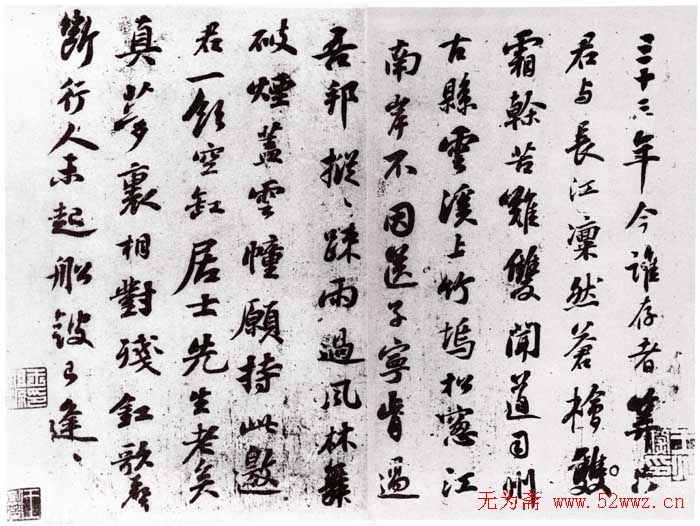 三十三年今誰存者算只
君与長江凜然蒼檜雙
霜幹苦難雙聞道司州
古縣雲溪上竹塢松窻江
南岸不因送子寧肯過
吾邦摐〻疎雨過風林舞
破煙蓋雲幢願持此邀
君一飲空缸居士先生老矣
真夢裏相對殘釭歌聲
斷行人未起船鼓已逢〻
无为斋 www.52wwz.cn